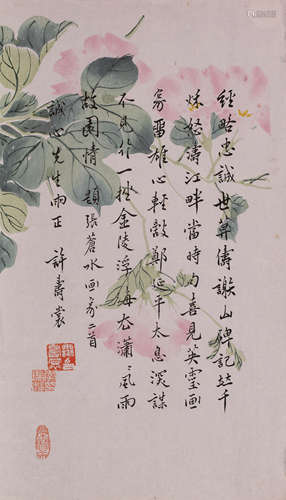 經略忠誠世莫儔謝山碑記起千
秋怒濤江畔當時月喜見英靈画
象留雄心輕敵鄭延平太息深謀
不見行一挫金陵浮海去瀟〻風雨
故園情 題張蒼水画象二首
誠心先生雨正 許壽裳